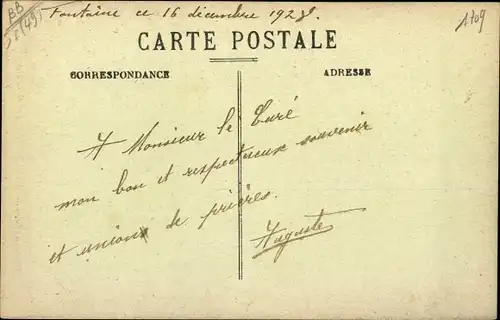 Fontaine ce 16 décembre 1928.
1709
CARTE POSTALE
CORRESPONDANCE
ADRESSE
A Monsieur le Curé
mon bon et respectueux souvenir
et union de prières.
Auguste